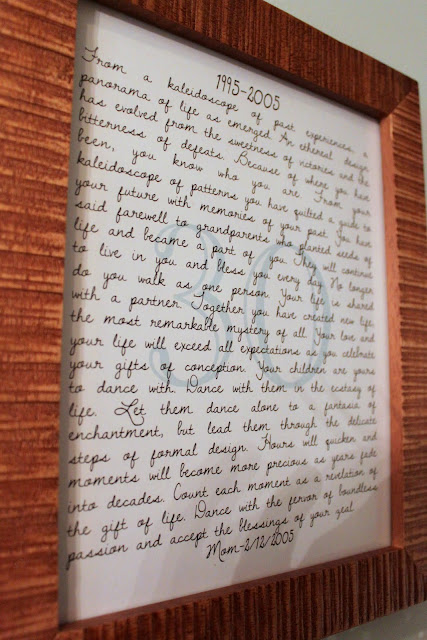 1995-2005
From a kaleidoscope of past experiences, a
panorama of life as emerged. An ethereal design
has evolved from the sweetness of victories and the
bitterness of defeats. Because of where you have
been, you know who you are. From your
kaleidoscope of patterns you have quilted a guide to
your future with memories of your past. You have
said farewell to grandparents who planted seeds of
life and became a part of you. They will continue
to live in you and bless you every day. No longer
do you walk as one person. Your life is shared
with a partner. Together you have created new life,
the most remarkable mystery of all. Your love and
your life will exceed all expectations as you celebrate
your gifts of conception. Your children are yours
to dance with. Dance with them in the ecstasy of
life. Let them dance alone to a fantasia of
enchantment, but lead them through the delicate
steps of formal design. Hours will quicken and
moments will become more precious as years fade
into decades. Count each moment as a revelation of
the gift of life. Dance with the fervor of boundless
passion and accept the blessings of your zeal.
Mom-2/12/2005
30